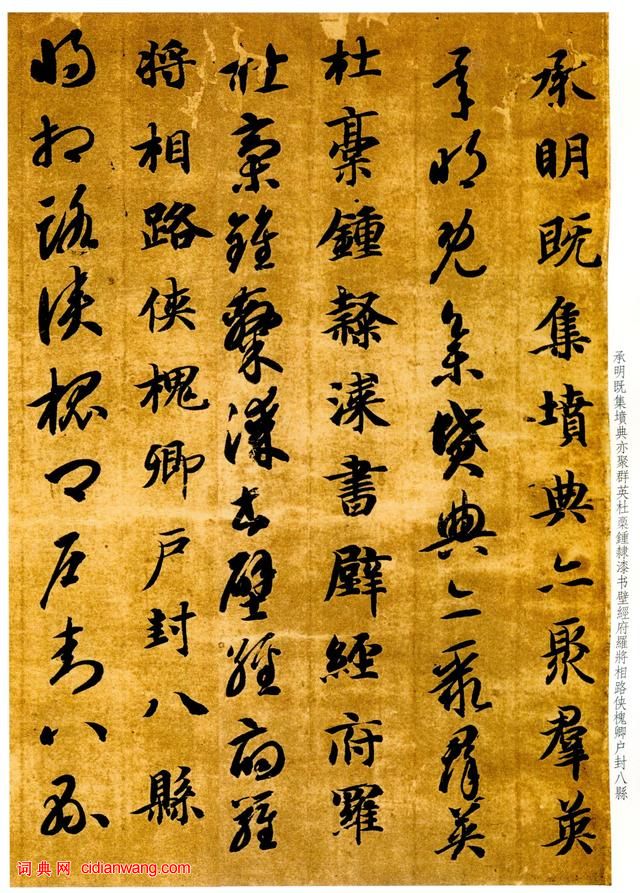 承明既集墳典亦聚羣英
承明既集墳典亦聚羣英
杜稾鍾隸漆書壁經府羅
杜稾鍾隸漆書壁經府羅
將相路侠槐卿戶封八縣
將相路侠槐卿戶封八縣
承明既集墳典亦聚群英杜稾鍾隸漆书壁經府羅將相路侠槐卿户封八縣
词典网 cidianwang.com